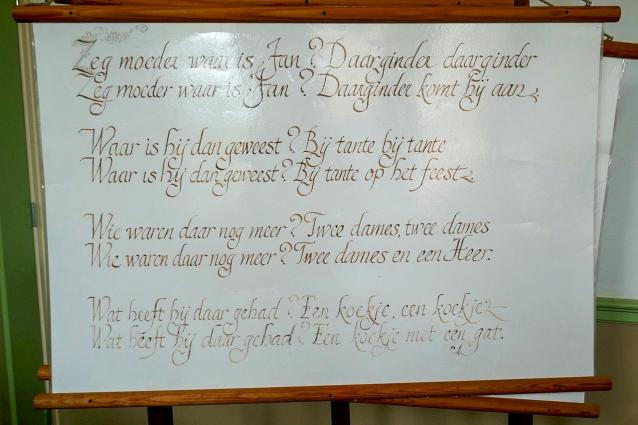 Zeg moeder waar is Jan? Daarginder daarginder
Zeg moeder waar is Jan? Daarginder komt hij aan
Waar is hij dan geweest? Bij tante bij tante
Waar is hij dan geweest? Bij tante op het feest
Wie waren daar nog meer? Twee dames, twee dames
Wie waren daar nog meer? Twee dames en een Heer.
Wat heeft hij daar gehad? Een koekje, een koekje
Wat heeft hij daar gehad? Een koekje met een gat.